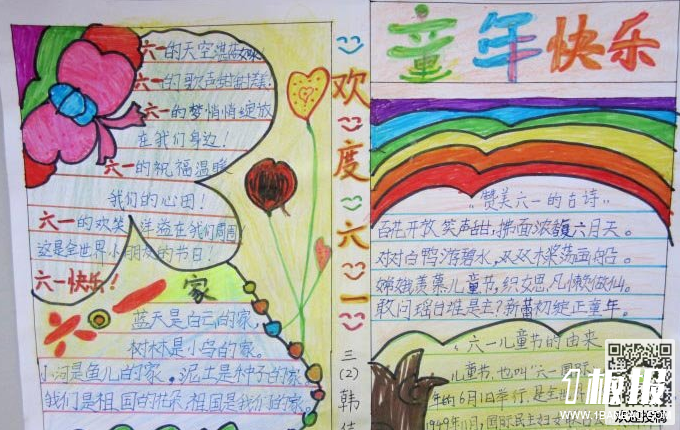 六一的天空湛蓝
六一的歌声甜甜
六一的梦悄悄绽放
在我们身边！
六一的祝福温暖
我们的心田！
六一的欢笑洋溢在我们周围，
这是全世界小朋友的节日！
六一快乐！
家
蓝天是白云的家，
树林是小鸟的家。
小河是鱼儿的家。泥土是种子的家
我们是祖国的花朵，祖国是我们的家。
欢度六一
三(2)韩
童年快乐
“赞美六一的古诗”
百花开放笑声甜，拂面浓馥六月天。
对对白鸭游碧水，双双木桨荡画船。
嫦娥羡慕儿童节，织女思凡懒做仙。
敢问瑶台谁是主？新蕾初绽正童年。
六一儿童节的由来
儿童节，也叫“六一国际
年的6月1日举行，是全
1949年11月，国际民主妇女联合会
板报
欢迎投稿